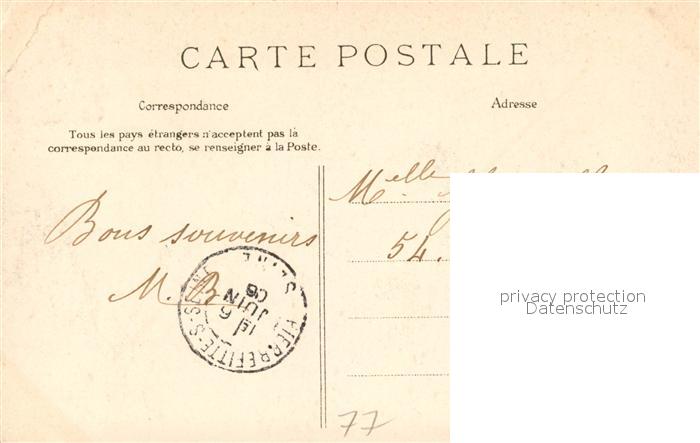 CARTE POSTALE
Correspondance
Adresse
Tous les pays étrangers n'acceptent pas la
correspondance au recto, se renseigner à la Poste.
Melle
Bons souvenirs
54.
M. B
PIERREFITTE-S-SEINE
SEINE
6
JUIN
06
privacy protection
Datenschutz
77